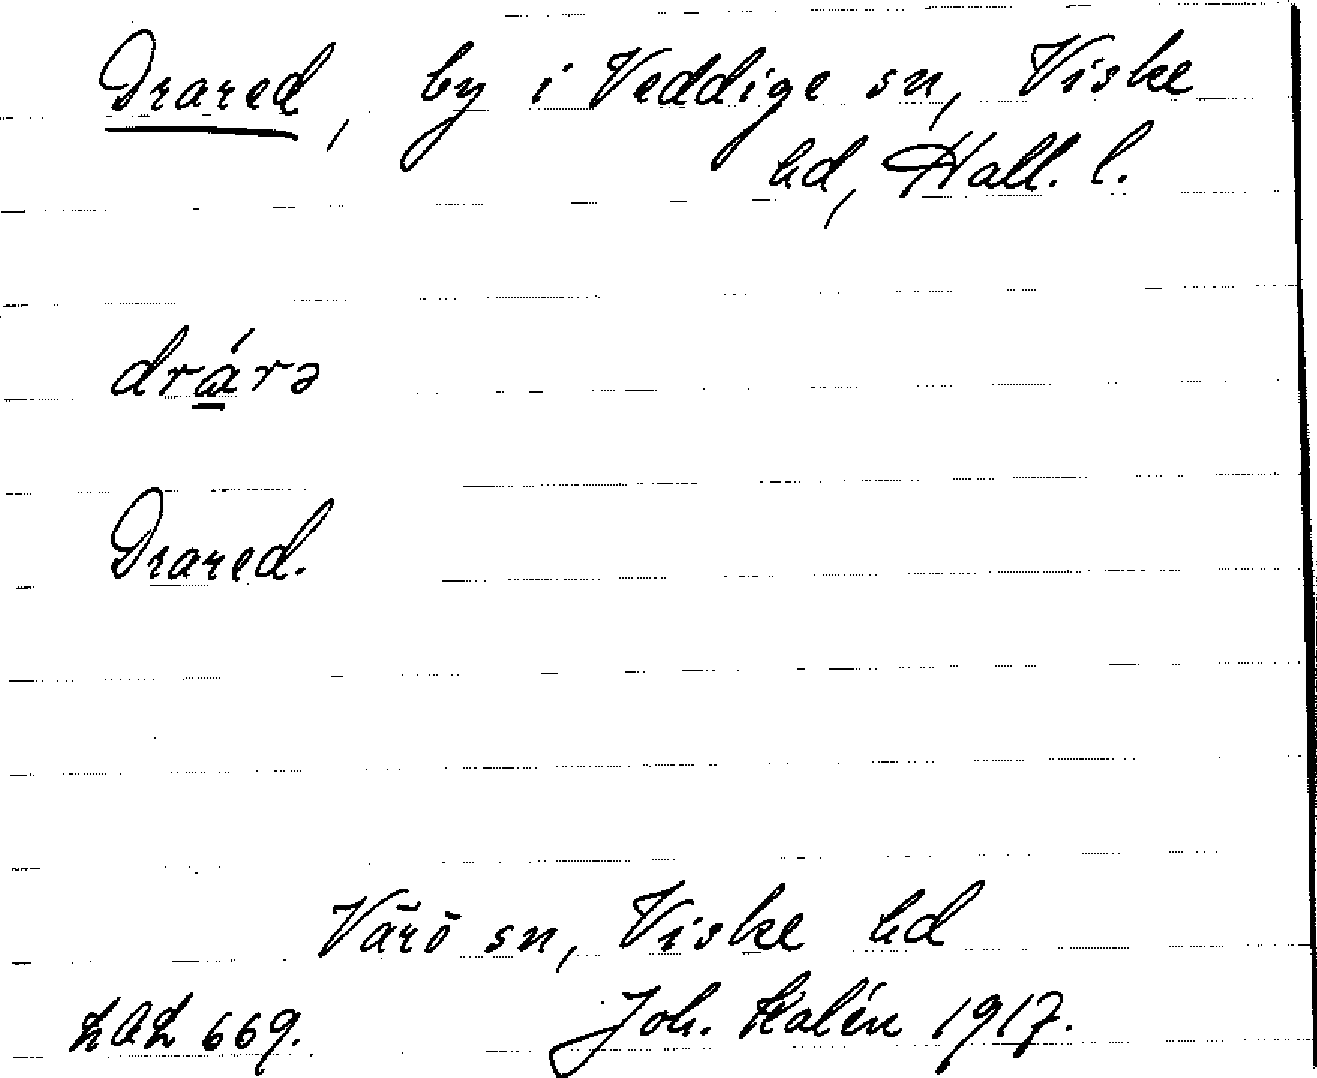 Drared, by i Veddige sn, Viske
hd, Hall. l.
drárə
Drared.
Värö sn, Viske hd
LAL 669. Joh. Kalén 1917.